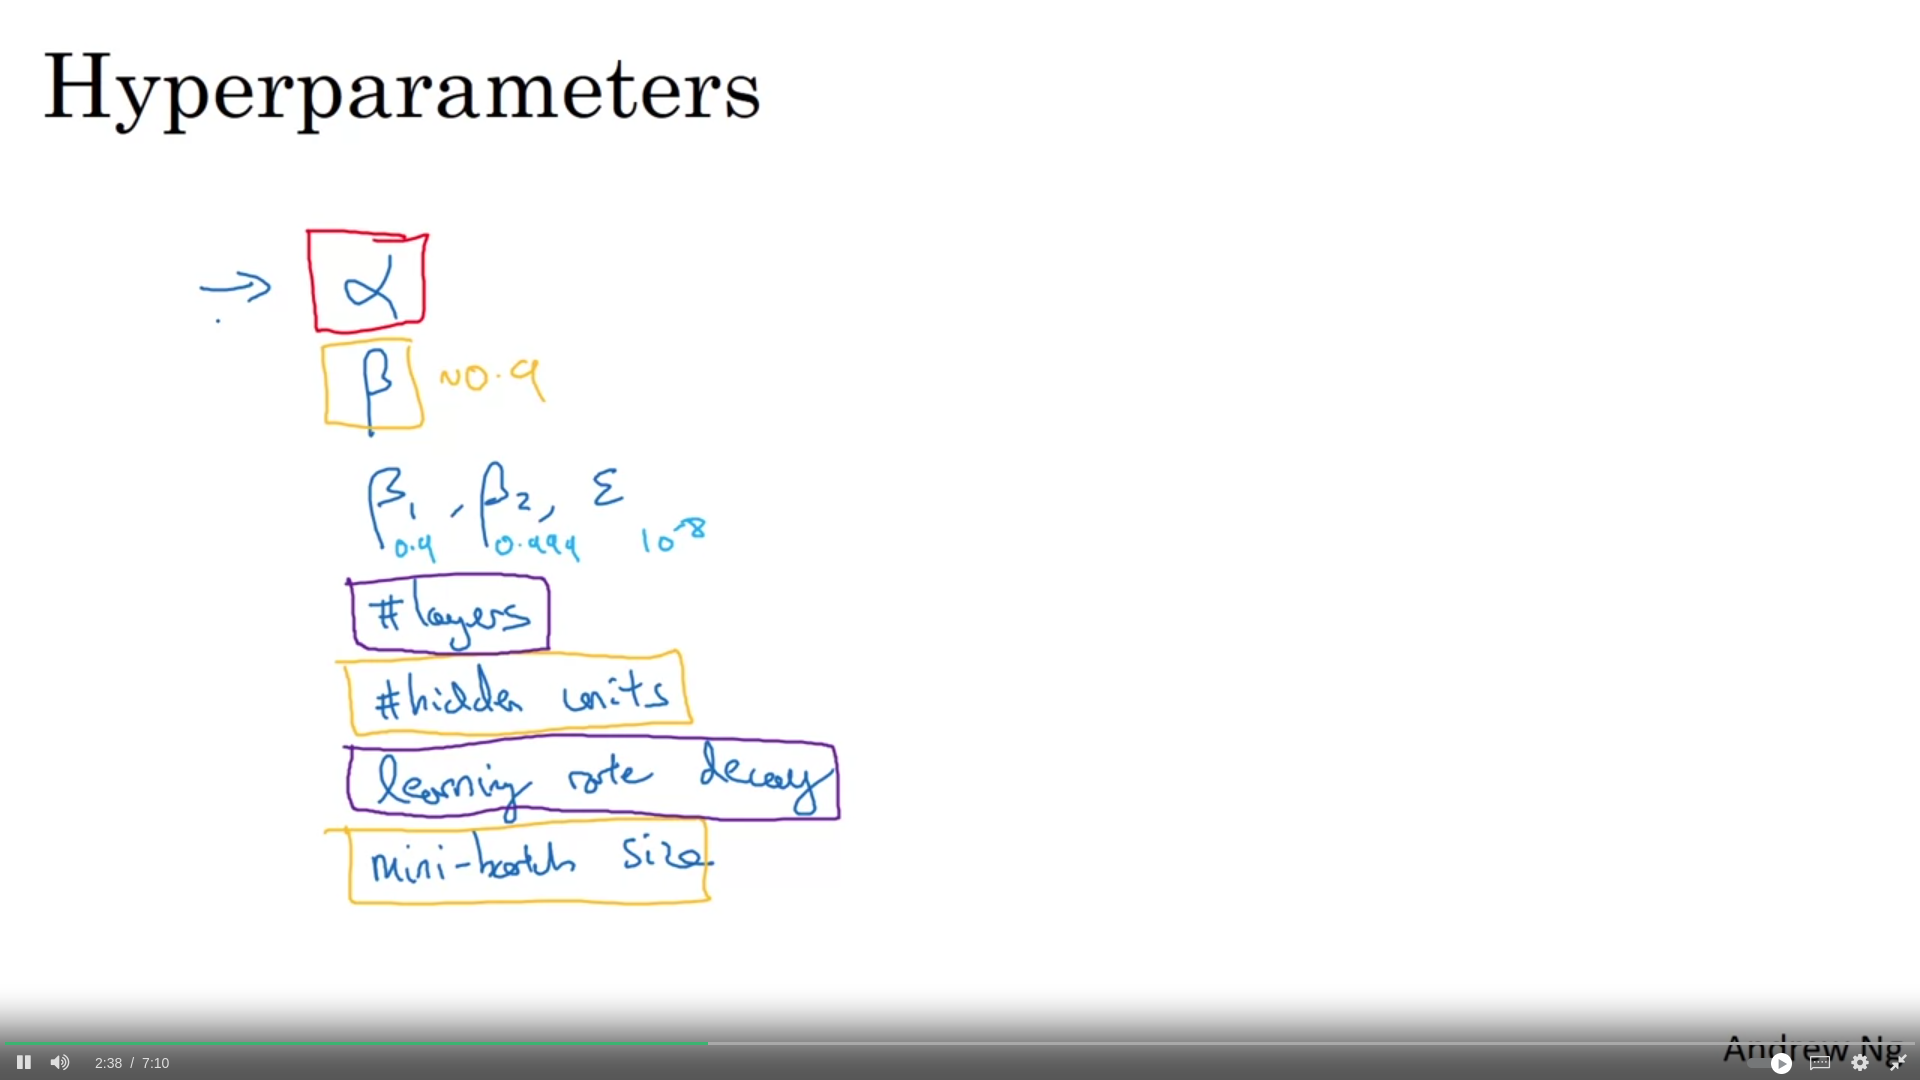 Hyperparameters
→ α
β ~0.9
β₁, β₂, ε
0.9 0.999 10⁻⁸
#layers
#hidden units
learning rate decay
mini-batch size
Andrew Ng
2:38 / 7:10